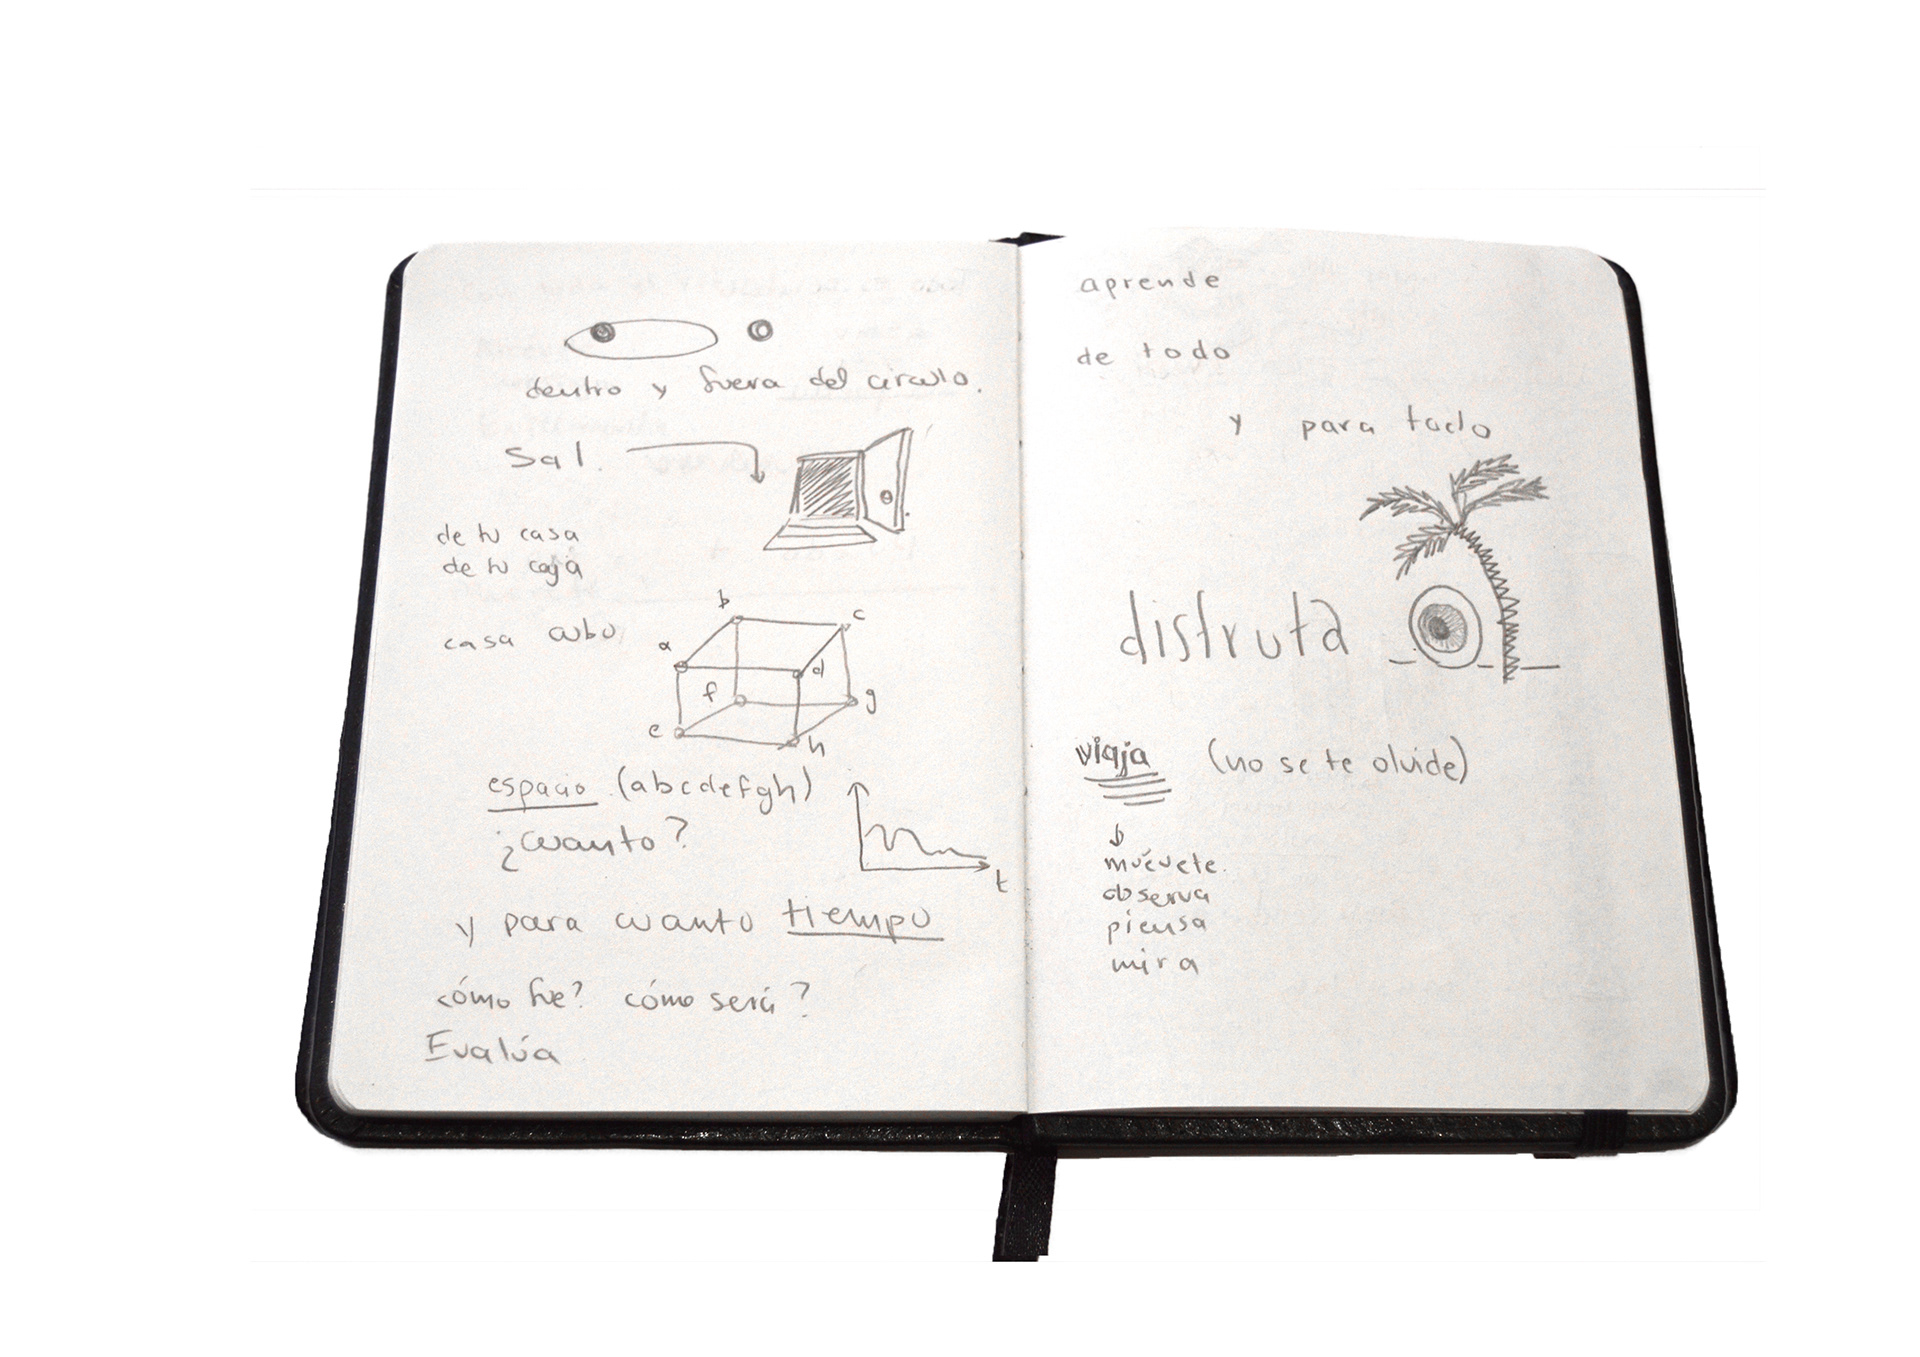 dentro y fuera del circulo.
Sal.
de tu casa
de tu caja
casa cubo
b
c
a
d
f
g
e
h
espacio (abcdefgh)
¿cuanto?
t
y para cuanto tiempo
cómo fue? cómo será?
Evalúa
aprende
de todo
y para todo
disfruta
viaja (no se te olvide)
muévete.
observa
piensa
mira